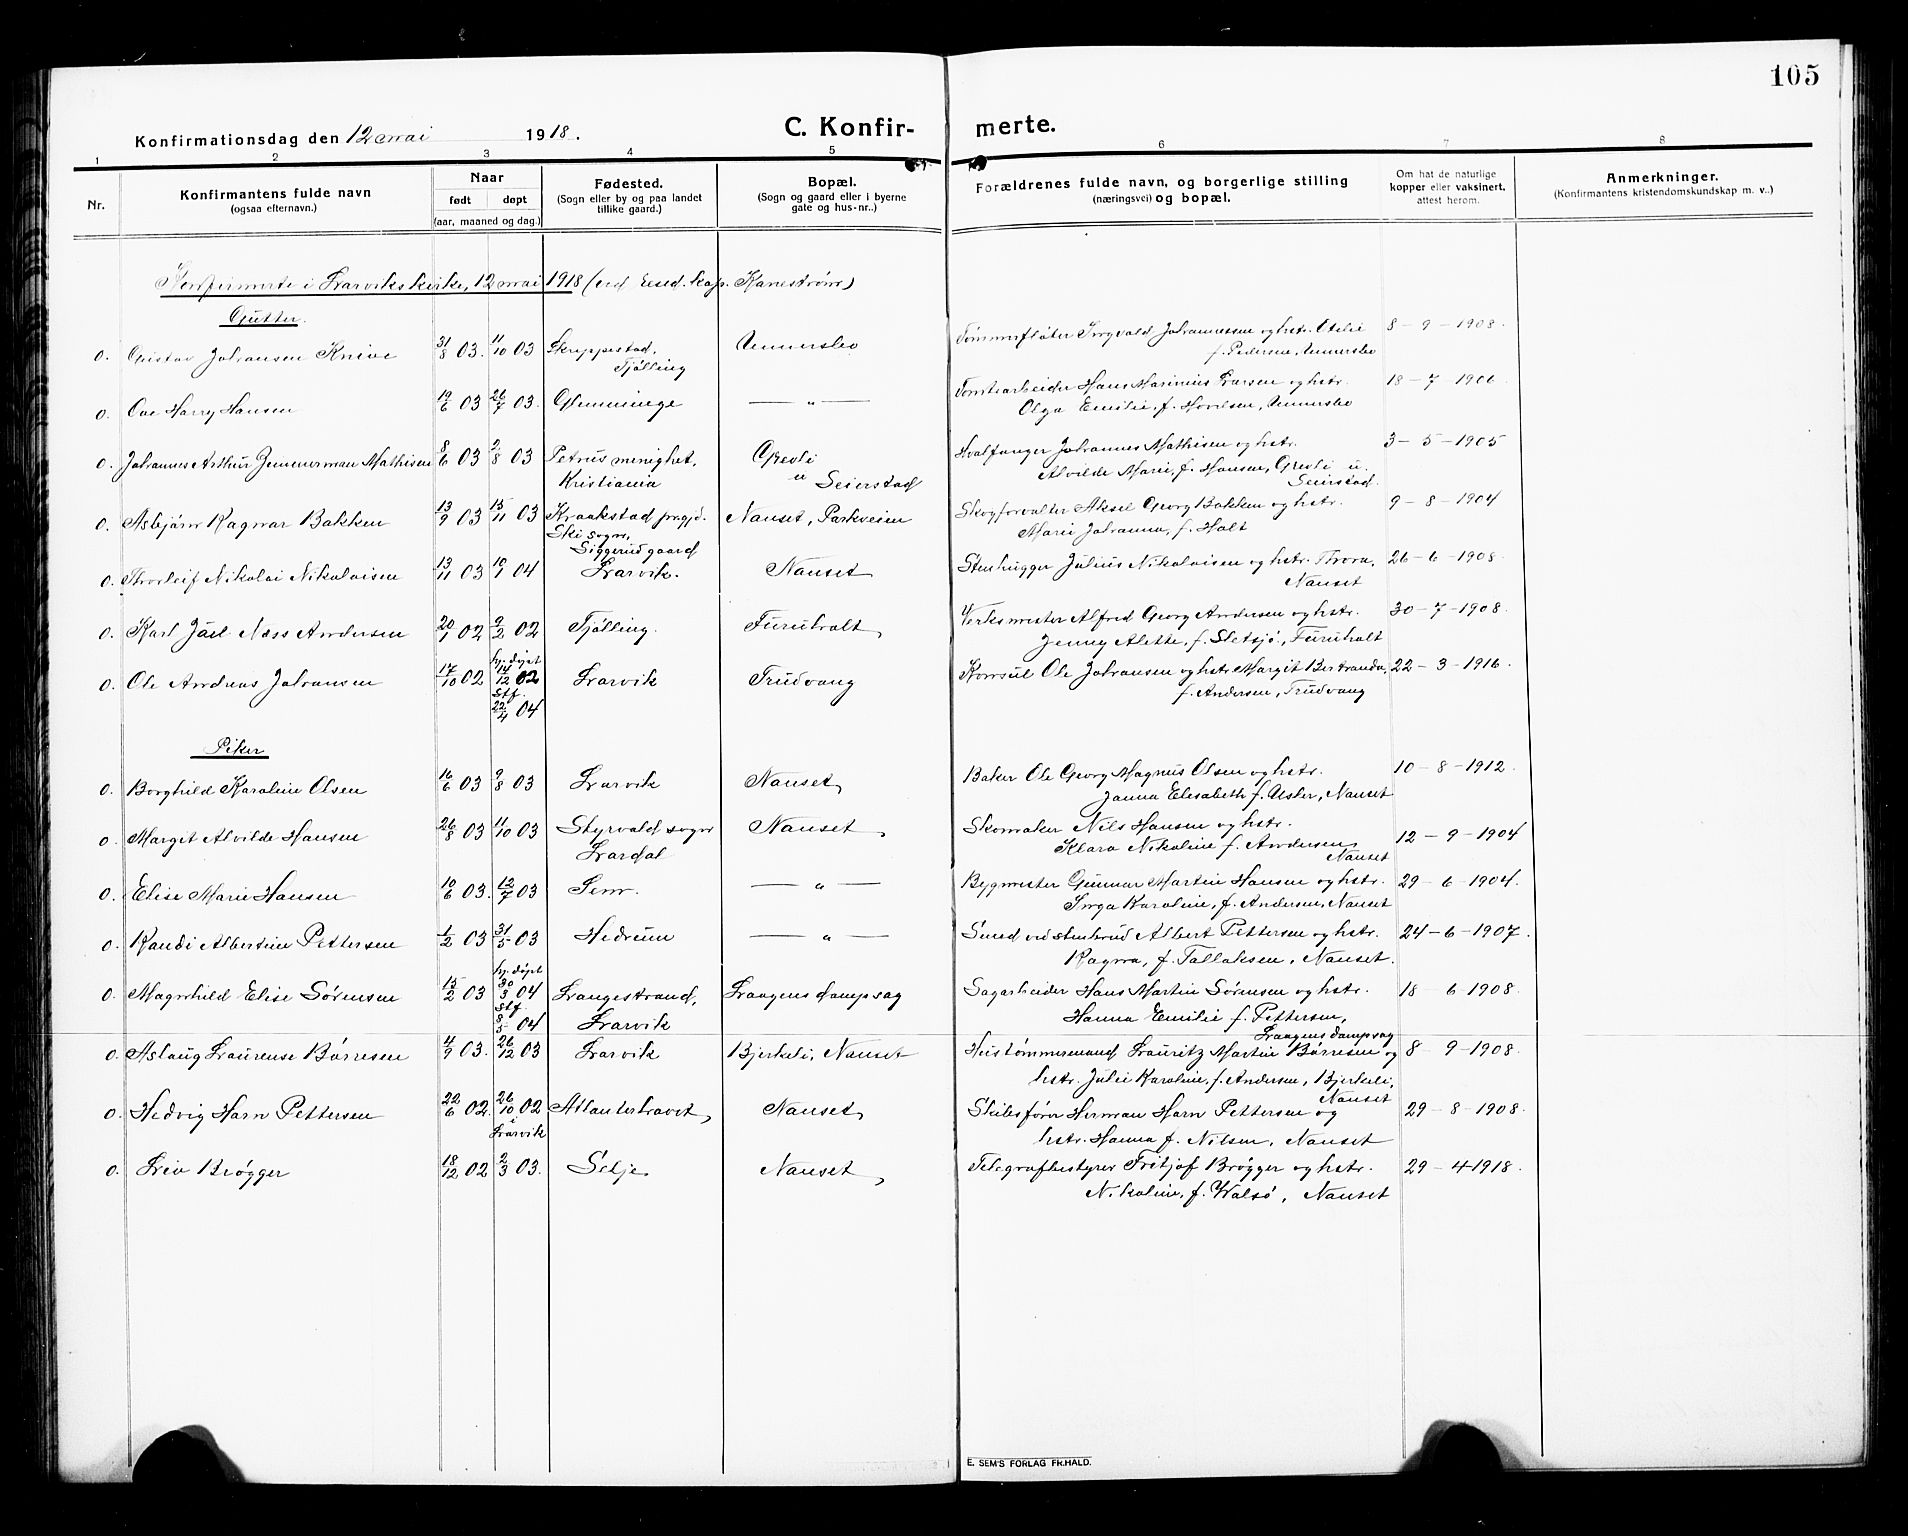 105
Konfirmationsdag den 12 mai 1918.
C. Konfirmerte.
1 2 3 4 5 6 7 8
Nr.
Konfirmantens fulde navn
(ogsaa efternavn.)
Naar
født døpt
(aar, maaned og dag.)
Fødested.
(Sogn eller by og paa landet
tillike gaard.)
Bopæl.
(Sogn og gaard eller i byerne
gate og hus-nr..)
Forældrenes fulde navn, og borgerlige stilling
(næringsvei) og bopæl.
Om hat de naturlige
kopper eller vaksinert.
attest herom.
Anmerkninger.
(Konfirmantens kristendomskundskap m. v..)
Konfirmerte i Larviks kirke, 12 mai 1918 (ved resed. kap. Kanestrøm)
Gutter.
0. Gustav Johansen Knive 31/8 03. 11/10 03 Skreppestad, Unnersbo Tømmerfløter Ingvald Johannessen og hstr. Otelie 8-9-1908.
Tjølling f. Pedersen, Unnersbo
0. Ove Harry Hansen 19/6 03 26/7 03. Glemminge — " — Tomtearbeider Hans Marinius Larsen og hstr. 18-7-1906
Olga Emilie, f. Hovelsen, Unnersbo
0. Johannes Arthur Zimmerman Mathisen 8/6 03 2/8 03 Petrus menighet, Grevli Hvalfanger Johannes Mathisen og hstr. 3-5-1905
Kristiania u Seierstad Alvilde Marie, f. Hansen, Grevli u.
Seierstad.
0. Asbjørn Ragnar Bakken 13/9 03 15/11 03 Kraakstad prgjd. Nanset, Parkveien Skogforvalter Aksel Georg Bakken og hstr. 9-8-1904
Ski sogn, Marie Johanna, f. Holt
Siggerud gaard
0. Thorleif Nikolai Nikolaisen 13/11 03 10/1 04 Larvik. Nanset Stenhugger Julius Nikolaisen og hstr. Thora, 26-6-1908
Nanset
0. Karl Joël Næss Andersen 20/1 02 9/2 02 Tjølling. Furuholt Verksmester Alfred Georg Andersen og hstr. 30-7-1908.
Jenny Alette, f. Sletsjø, Furuholt
0. Ole Andreas Johansen 17/10 02 hj. døpt 14/12 02 Larvik Trudvang Konsul Ole Johansen og hstr. Margit Bertranda, 22-3-1916.
Stf. 22/4 04 f. Andersen, Trudvang
Piker
0. Borghild Karoline Olsen 16/6 03 9/8 03 Larvik Nanset Baker Ole Georg Magnus Olsen og hstr. 10-8-1912.
Janna Elisabeth f. Asler, Nanset
0. Margit Alvilde Hansen 26/8 03 11/10 03 Styrvold sogn Nanset Skomaker Nils Hansen og hstr. 12-9-1904
Lardal Klara Nikoline f. Andersen
Nanset
0. Elise Marie Hansen 10/6 03. 12/7 03 Sem. — " — Bygmester Gunnar Martin Hansen og hstr. 29-6-1904.
Inga Karoline, f. Andersen, Nanset
0. Randi Albertine Pettersen 1/2 03 31/5 03 Hedrum — " — Smed ved stenbrud Albert Pettersen og hstr. 24-6-1907.
Ragna, f. Tallaksen, Nanset.
0. Magnhild Elise Sørensen 15/2 03 hj. døpt 30/3 04 Langestrand, Laagens dampsag Sagarbeider Hans Martin Sørensen og hstr. 18-6-1908.
Stf. 8/5 04 Larvik Hanna Emilie f. Pettersen,
Laagens dampsag
0. Aslaug Laurense Børresen 4/9 03. 26/12 03 Larvik Bjerkeli, Nanset Hustømmermand Lauritz Martin Børresen og 8-9-1908.
hstr. Julie Karoline, f. Andersen, Bjerkeli,
Nanset
0. Hedvig Horn Pettersen 22/6 02. 26/10 02 Atlanterhavet, Nanset Skibsfører Herman Horn Pettersen og 29-8-1908.
i Larvik hstr. Hanna f. Nilsen, Nanset
0. Liv Brøgger 18/12 02 2/3 03. Selje Nanset Telegrafbestyrer Fritjof Brøgger og hstr. 29-4-1918.
Nikoline, f. Walsø, Nanset
E. SEM'S FORLAG FR.HALD.